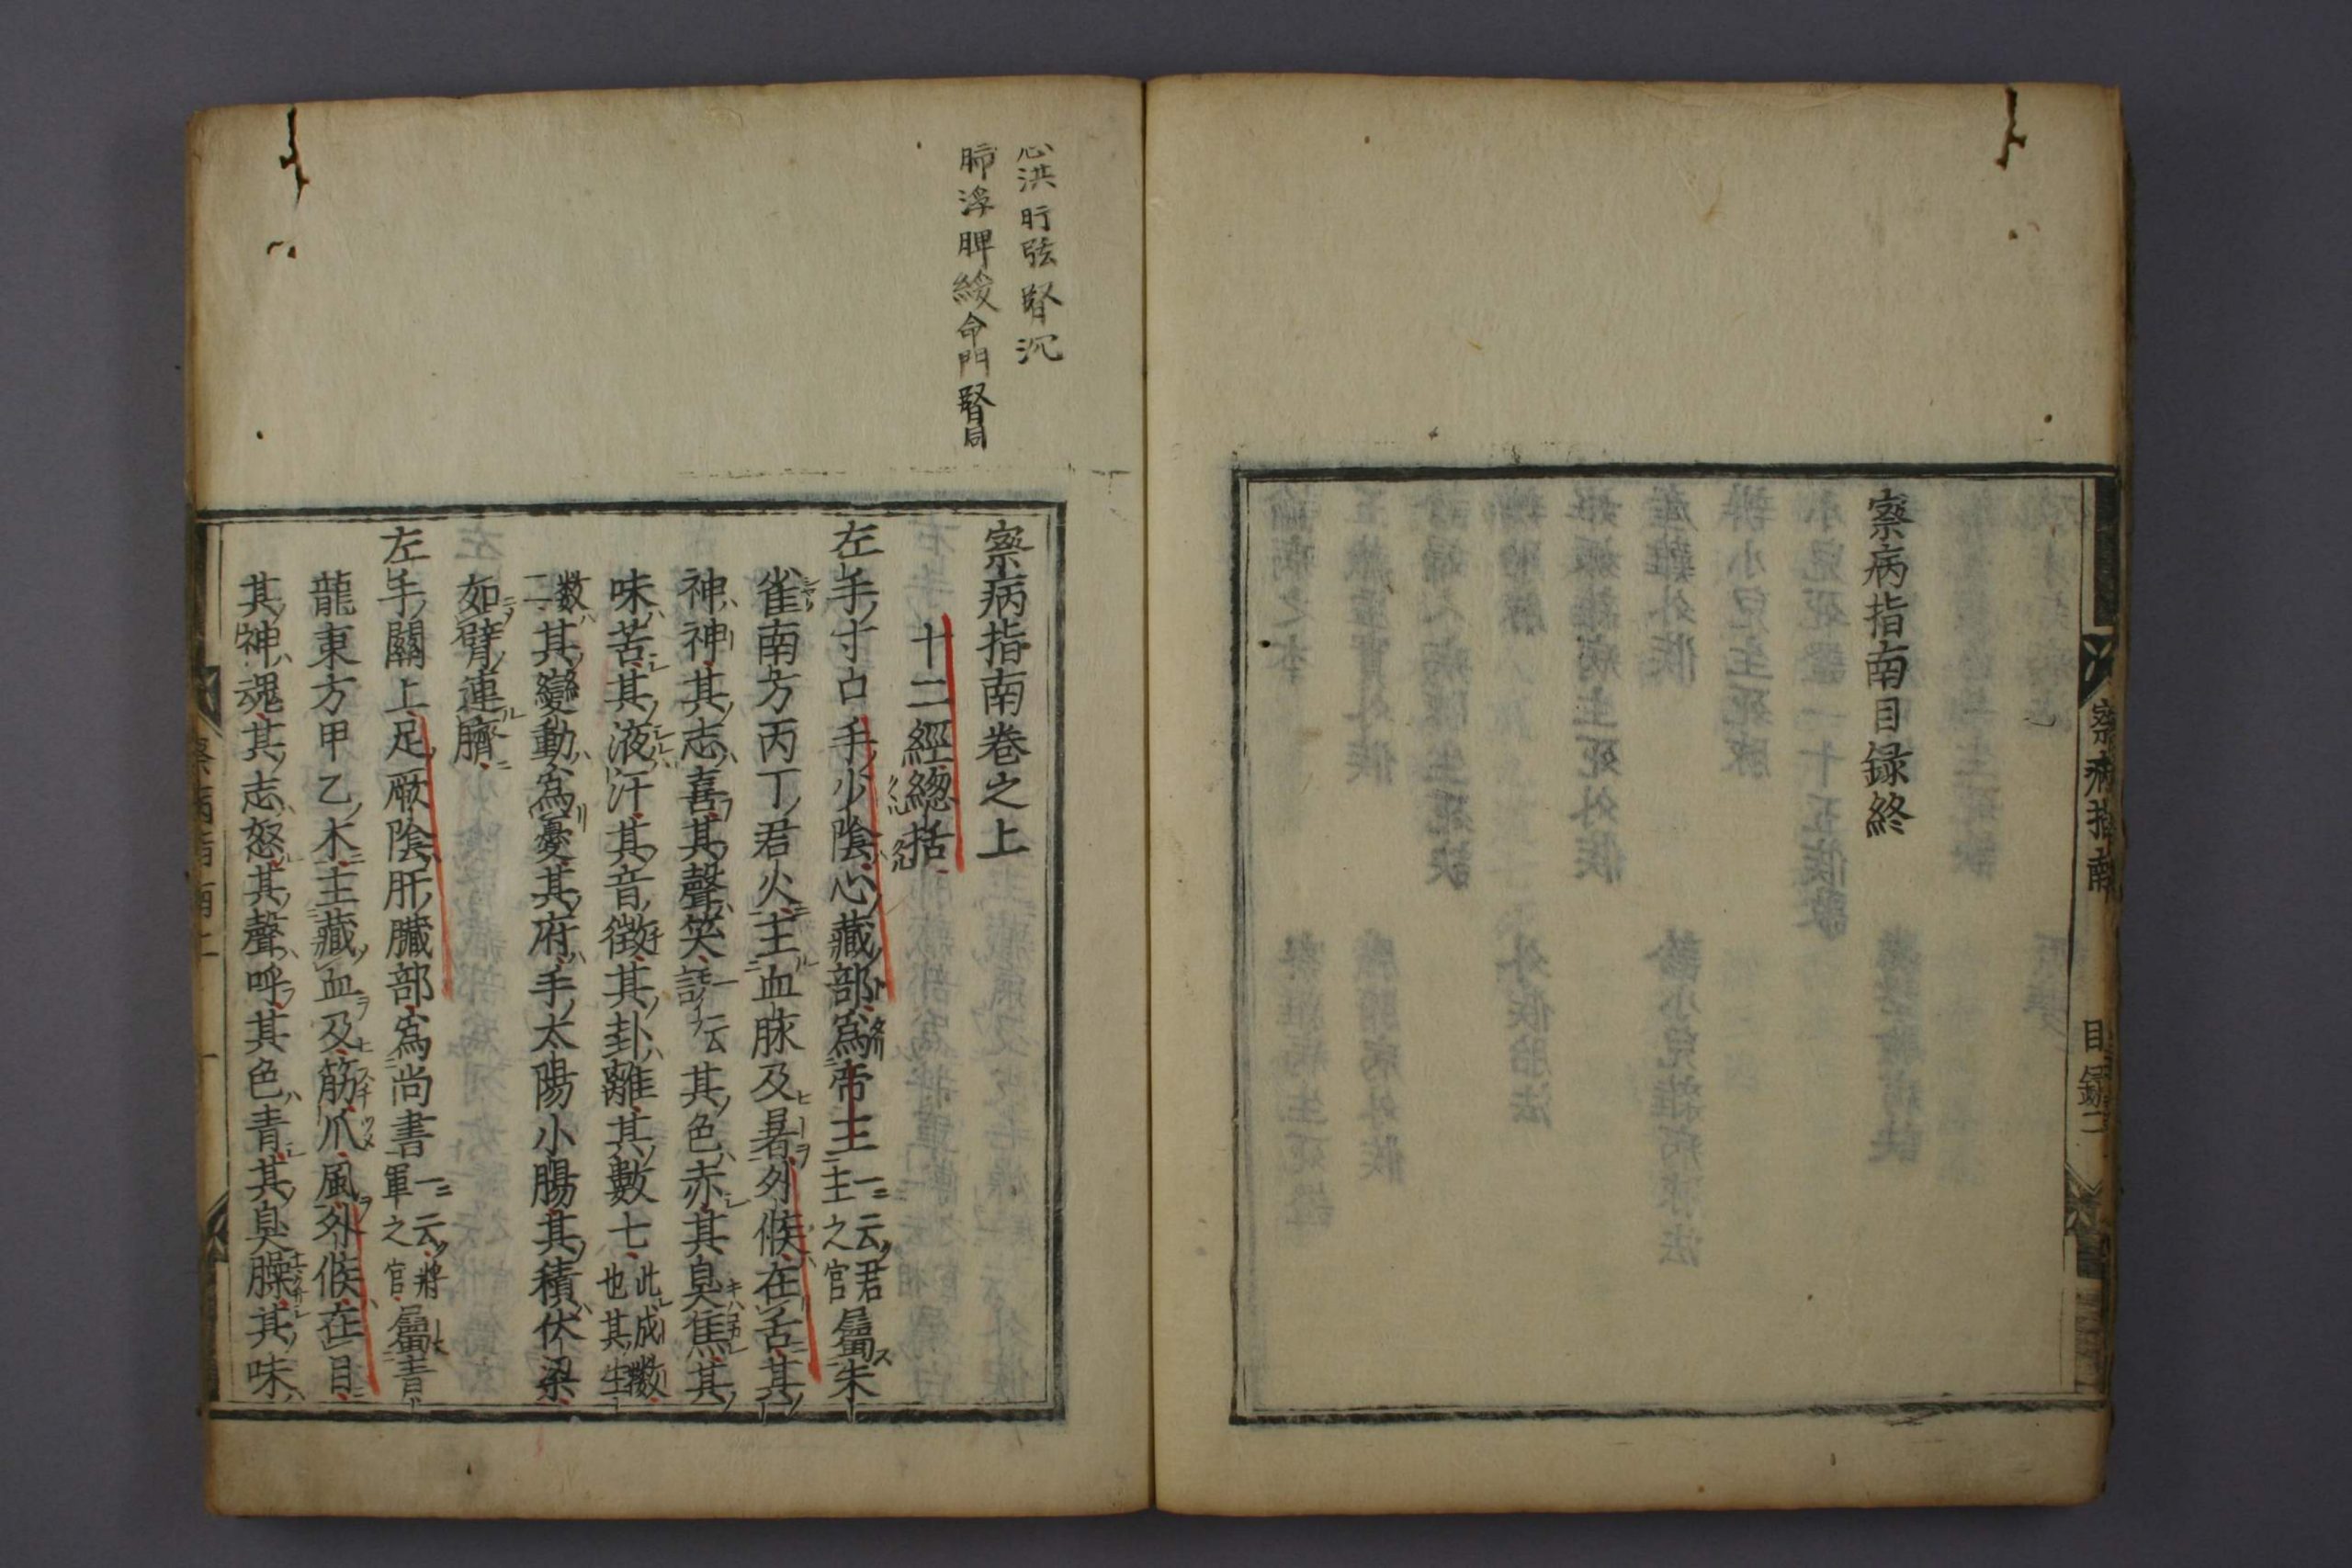 察病指南目録終
察病指南
目録二
心洪肝弦腎沉
肺浮脾緩命門腎同
察病指南卷之上
十二經總括
左手寸口手少陰心藏部爲帝王一云君主之官屬朱
雀南方丙丁君火主血脉及暑外候在舌其
神神其志喜其聲笑一云其色赤其臭焦其
味苦其液汗其音徵其卦離其數七此成數也其生
數二其變動爲憂其府手太陽小腸其積伏梁
如臂連臍
左手關上足厥陰肝臟部爲尚書一云將軍之官屬青
龍東方甲乙木主藏血及筋爪風外候在目
其神魂其志怒其聲呼其色青其臭臊其味